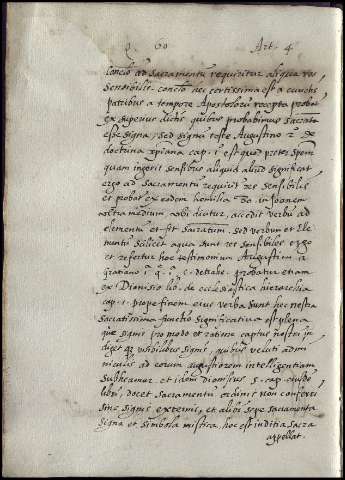 Q. 60 Art. 4
conclo ad Sacramentu requiritur aliqua res
Sensibilis. conclo hec certissima est a cunctis
patribus a tempore Apostoloru recepta probat
ex superius dictis quibus probabimus Sacrata
esse signa, sed signu teste Augustino 2 ex
doctrina xpiana cap. 1 est quod preter speciem
quam ingerit sensibus aliquid aliud significat
ergo ad Sacramentu requirit res Sensibilis
et probat ex eodem homilia 80 in Joanem
ubi dicitur, accedit verbu ad
elementu et fit Sacratum. Sed verbum et Ele
mentu scilicet aqua sunt res sensibiles ergo
et refertur hoc testimonium Augustini in
gratiano 1 q. 1 c. detrahe. probatur etiam
ex Dionisio lib. de ecclesiastica hierarchia
cap. 1. prope finem eius verba sunt hec nostra
Sacratissima functio significativa est plena
que signis pro modo et ratione captus nostri in
diget visibilibus signis, quibus veluti admi
niculis ad eorum augustiorem intelligentiam
Subleamur. et idem dionisius 5. cap. eiusde
libri, docet Sacramentu ordinis non conferri
sine signis externis, et alibi sepe sacramenta
signa et simbola mistica, hoc est inditia sacra
appellat.